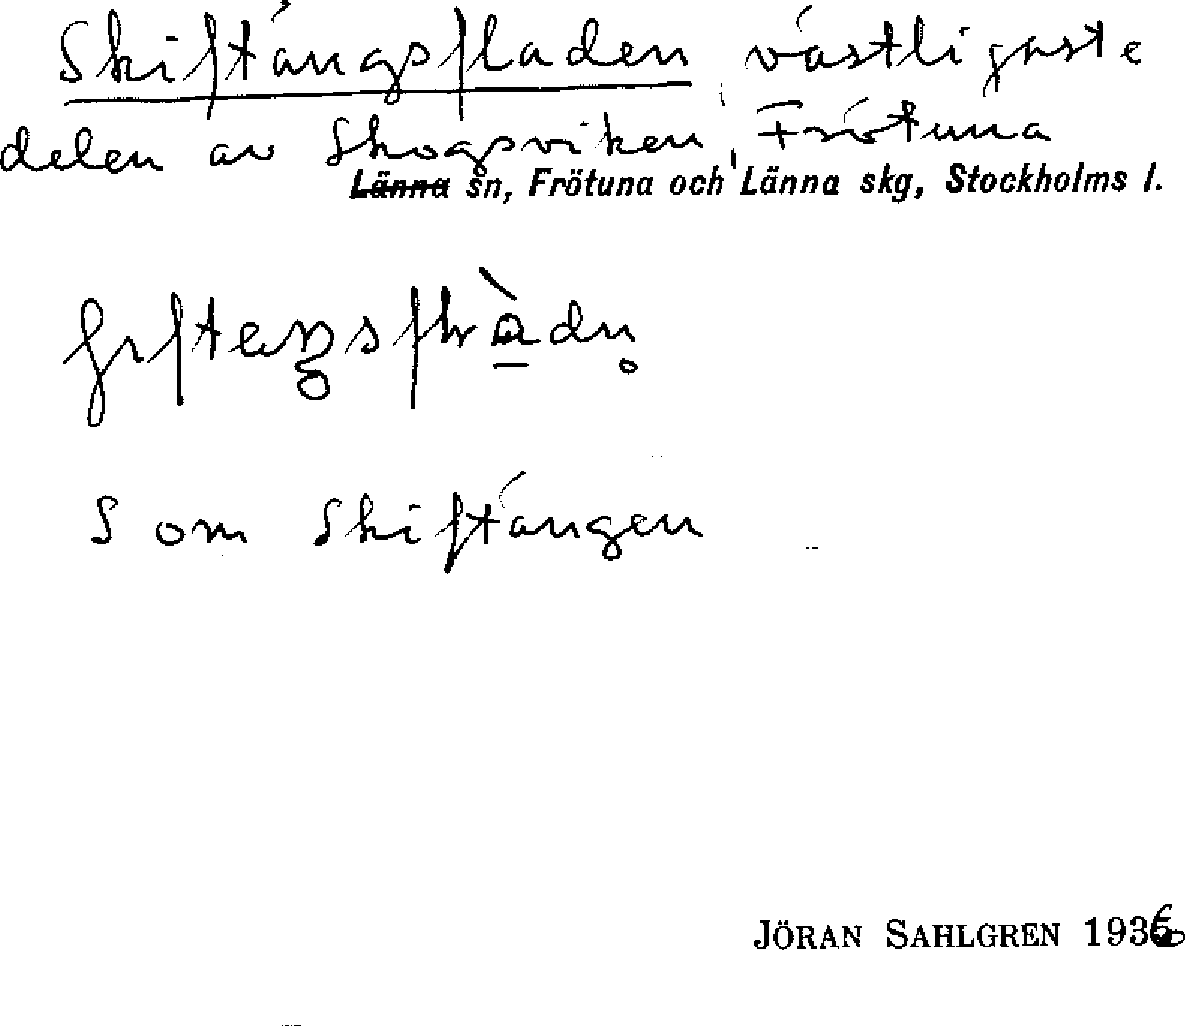 Skiftängsfladen, västligaste
delen av Skogsviken, Frötuna
Länna sn, Frötuna och Länna skg, Stockholms l.
S om Skiftängen
JÖRAN SAHLGREN 1936